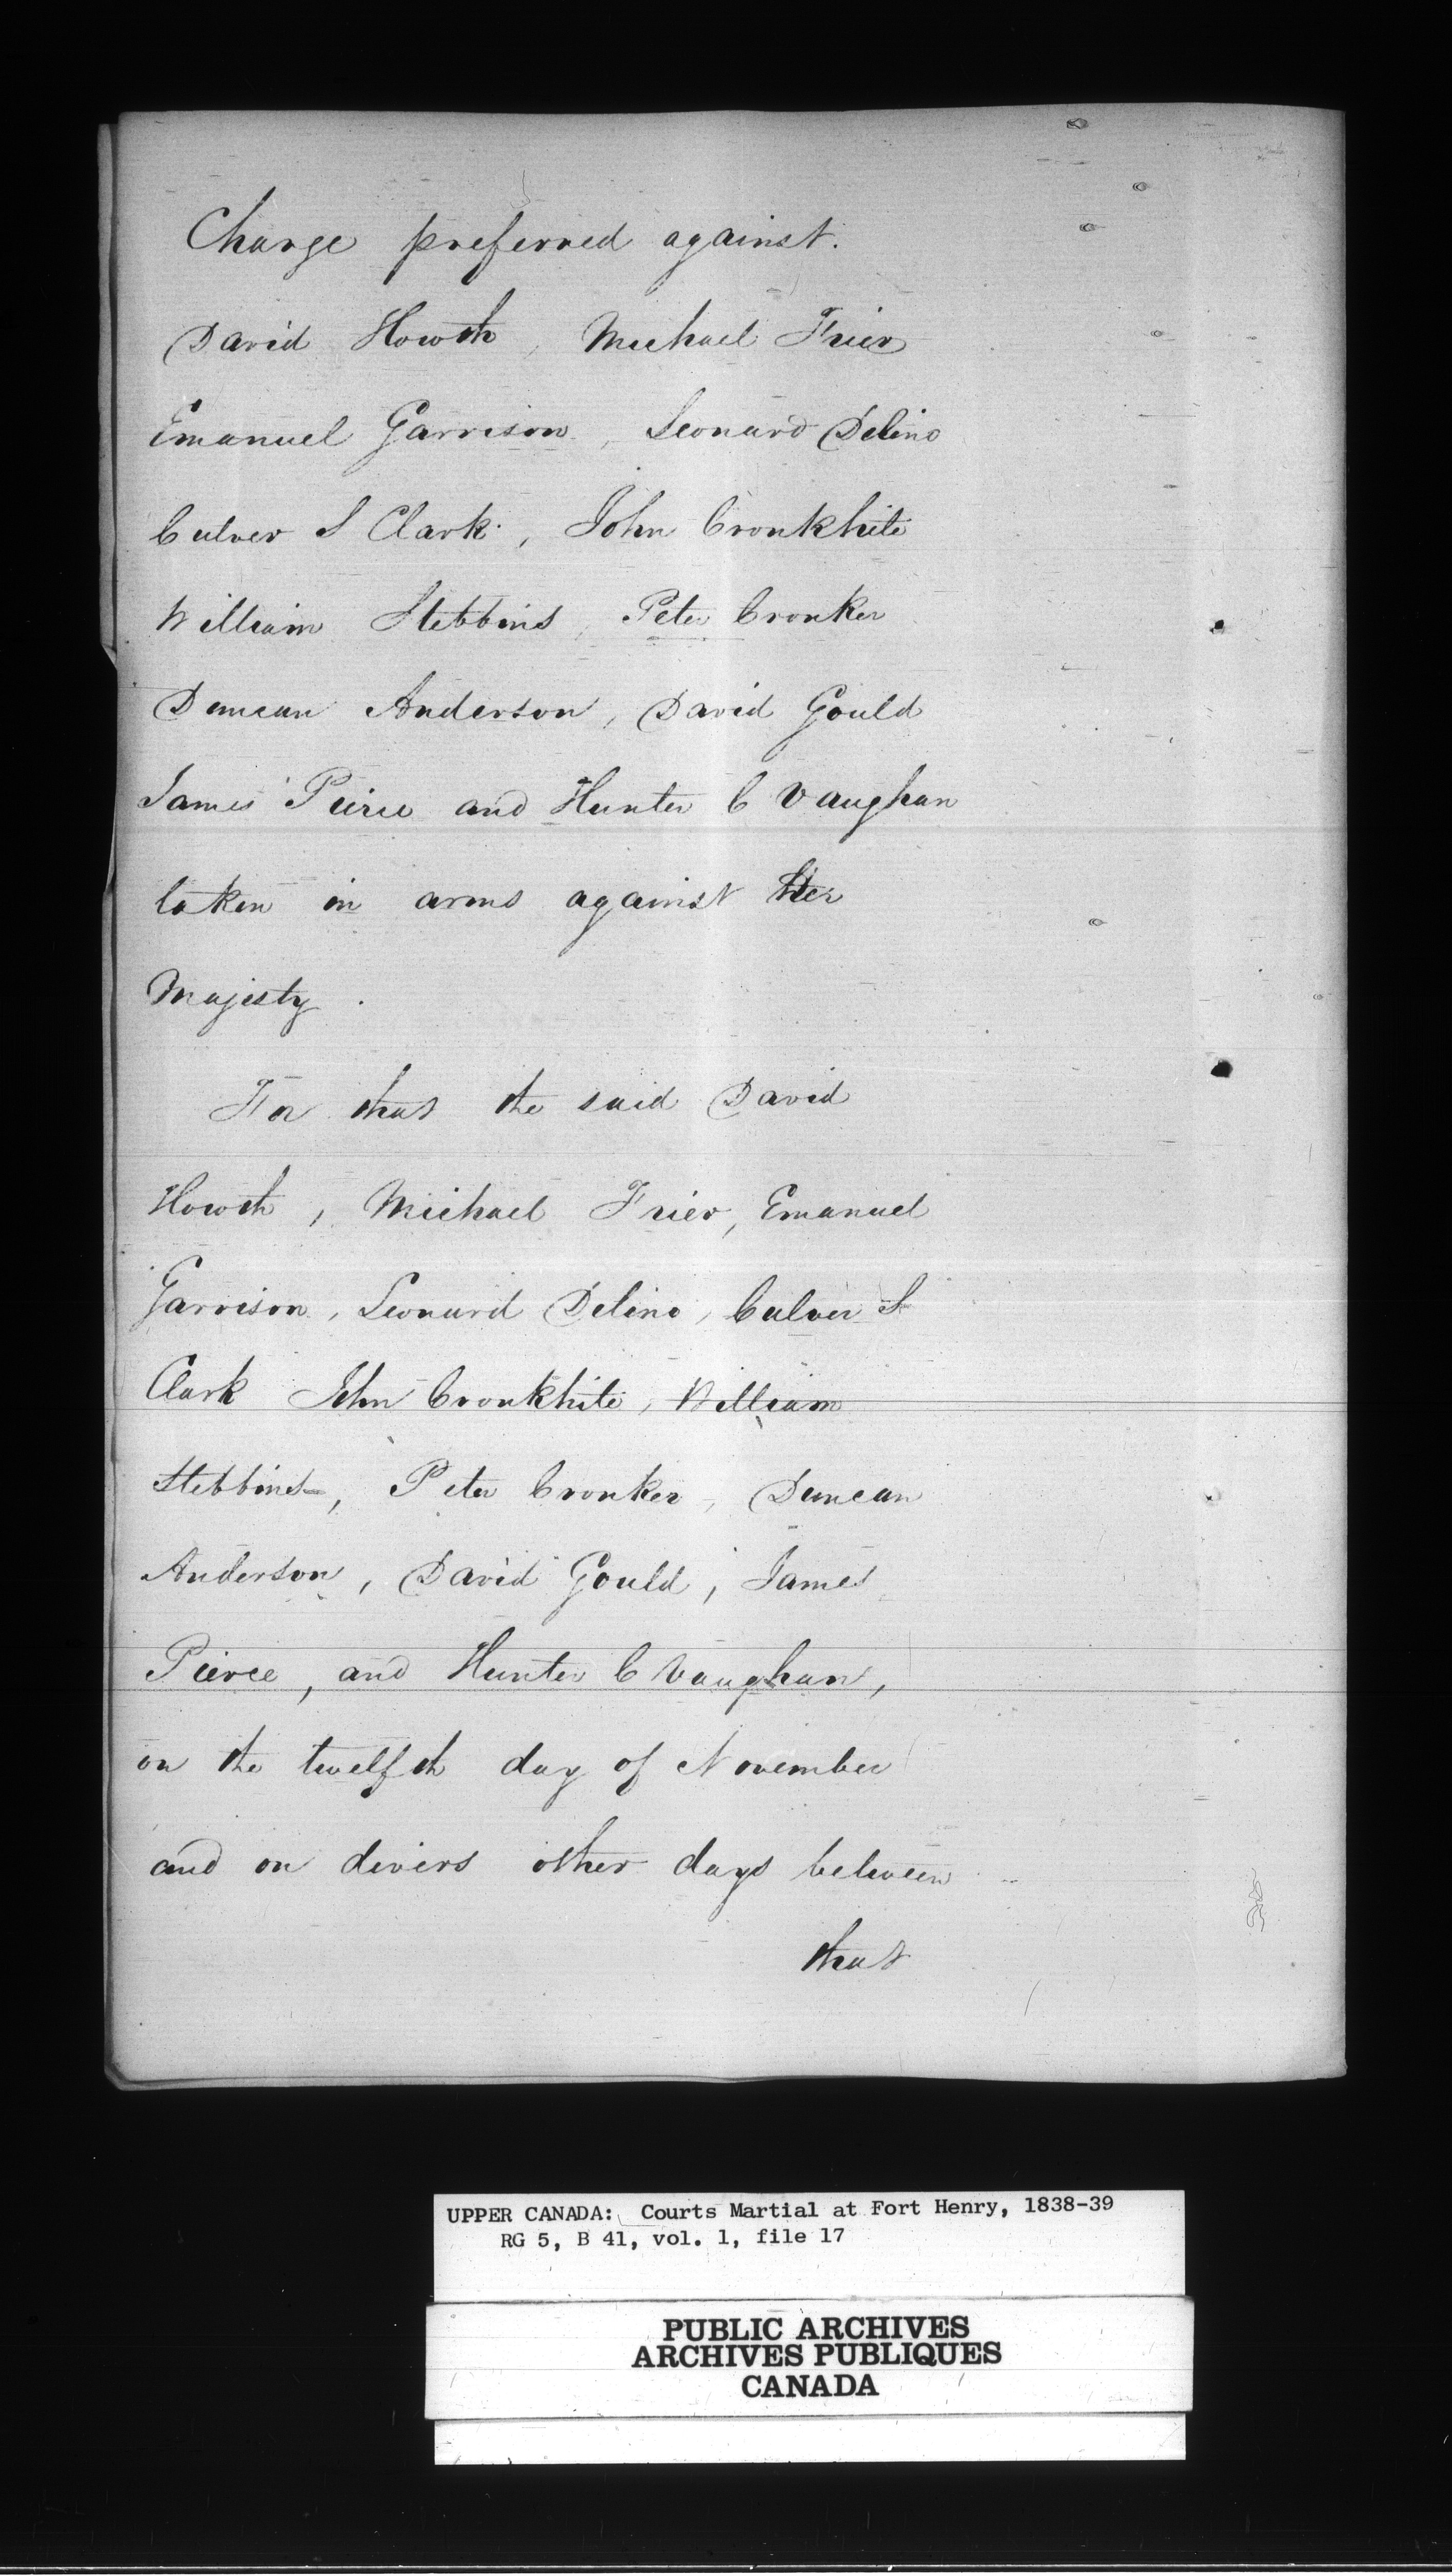 Charge preferred against.
David Howth, Michael Frier
Emanuel Garrison, Leonard Delino
Culver S Clark, John Cronkhite
William Stebbins, Peter Cronker
Duncan Anderson, David Gould
James Peirce and Hunter C Vaughan
taken in arms against Her
Majesty.
For that the said David
Howth, Michael Frier, Emanuel
Garrison, Leonard Delino, Culver S
Clark John Cronkhite, William
Stebbins, Peter Cronker, Duncan
Anderson, David Gould, James
Pierce, and Hunter C Vaughan,
on the twelfth day of November
and on divers other days between
that
UPPER CANADA: Courts Martial at Fort Henry, 1838-39
RG 5, B 41, vol. 1, file 17
PUBLIC ARCHIVES
ARCHIVES PUBLIQUES
CANADA